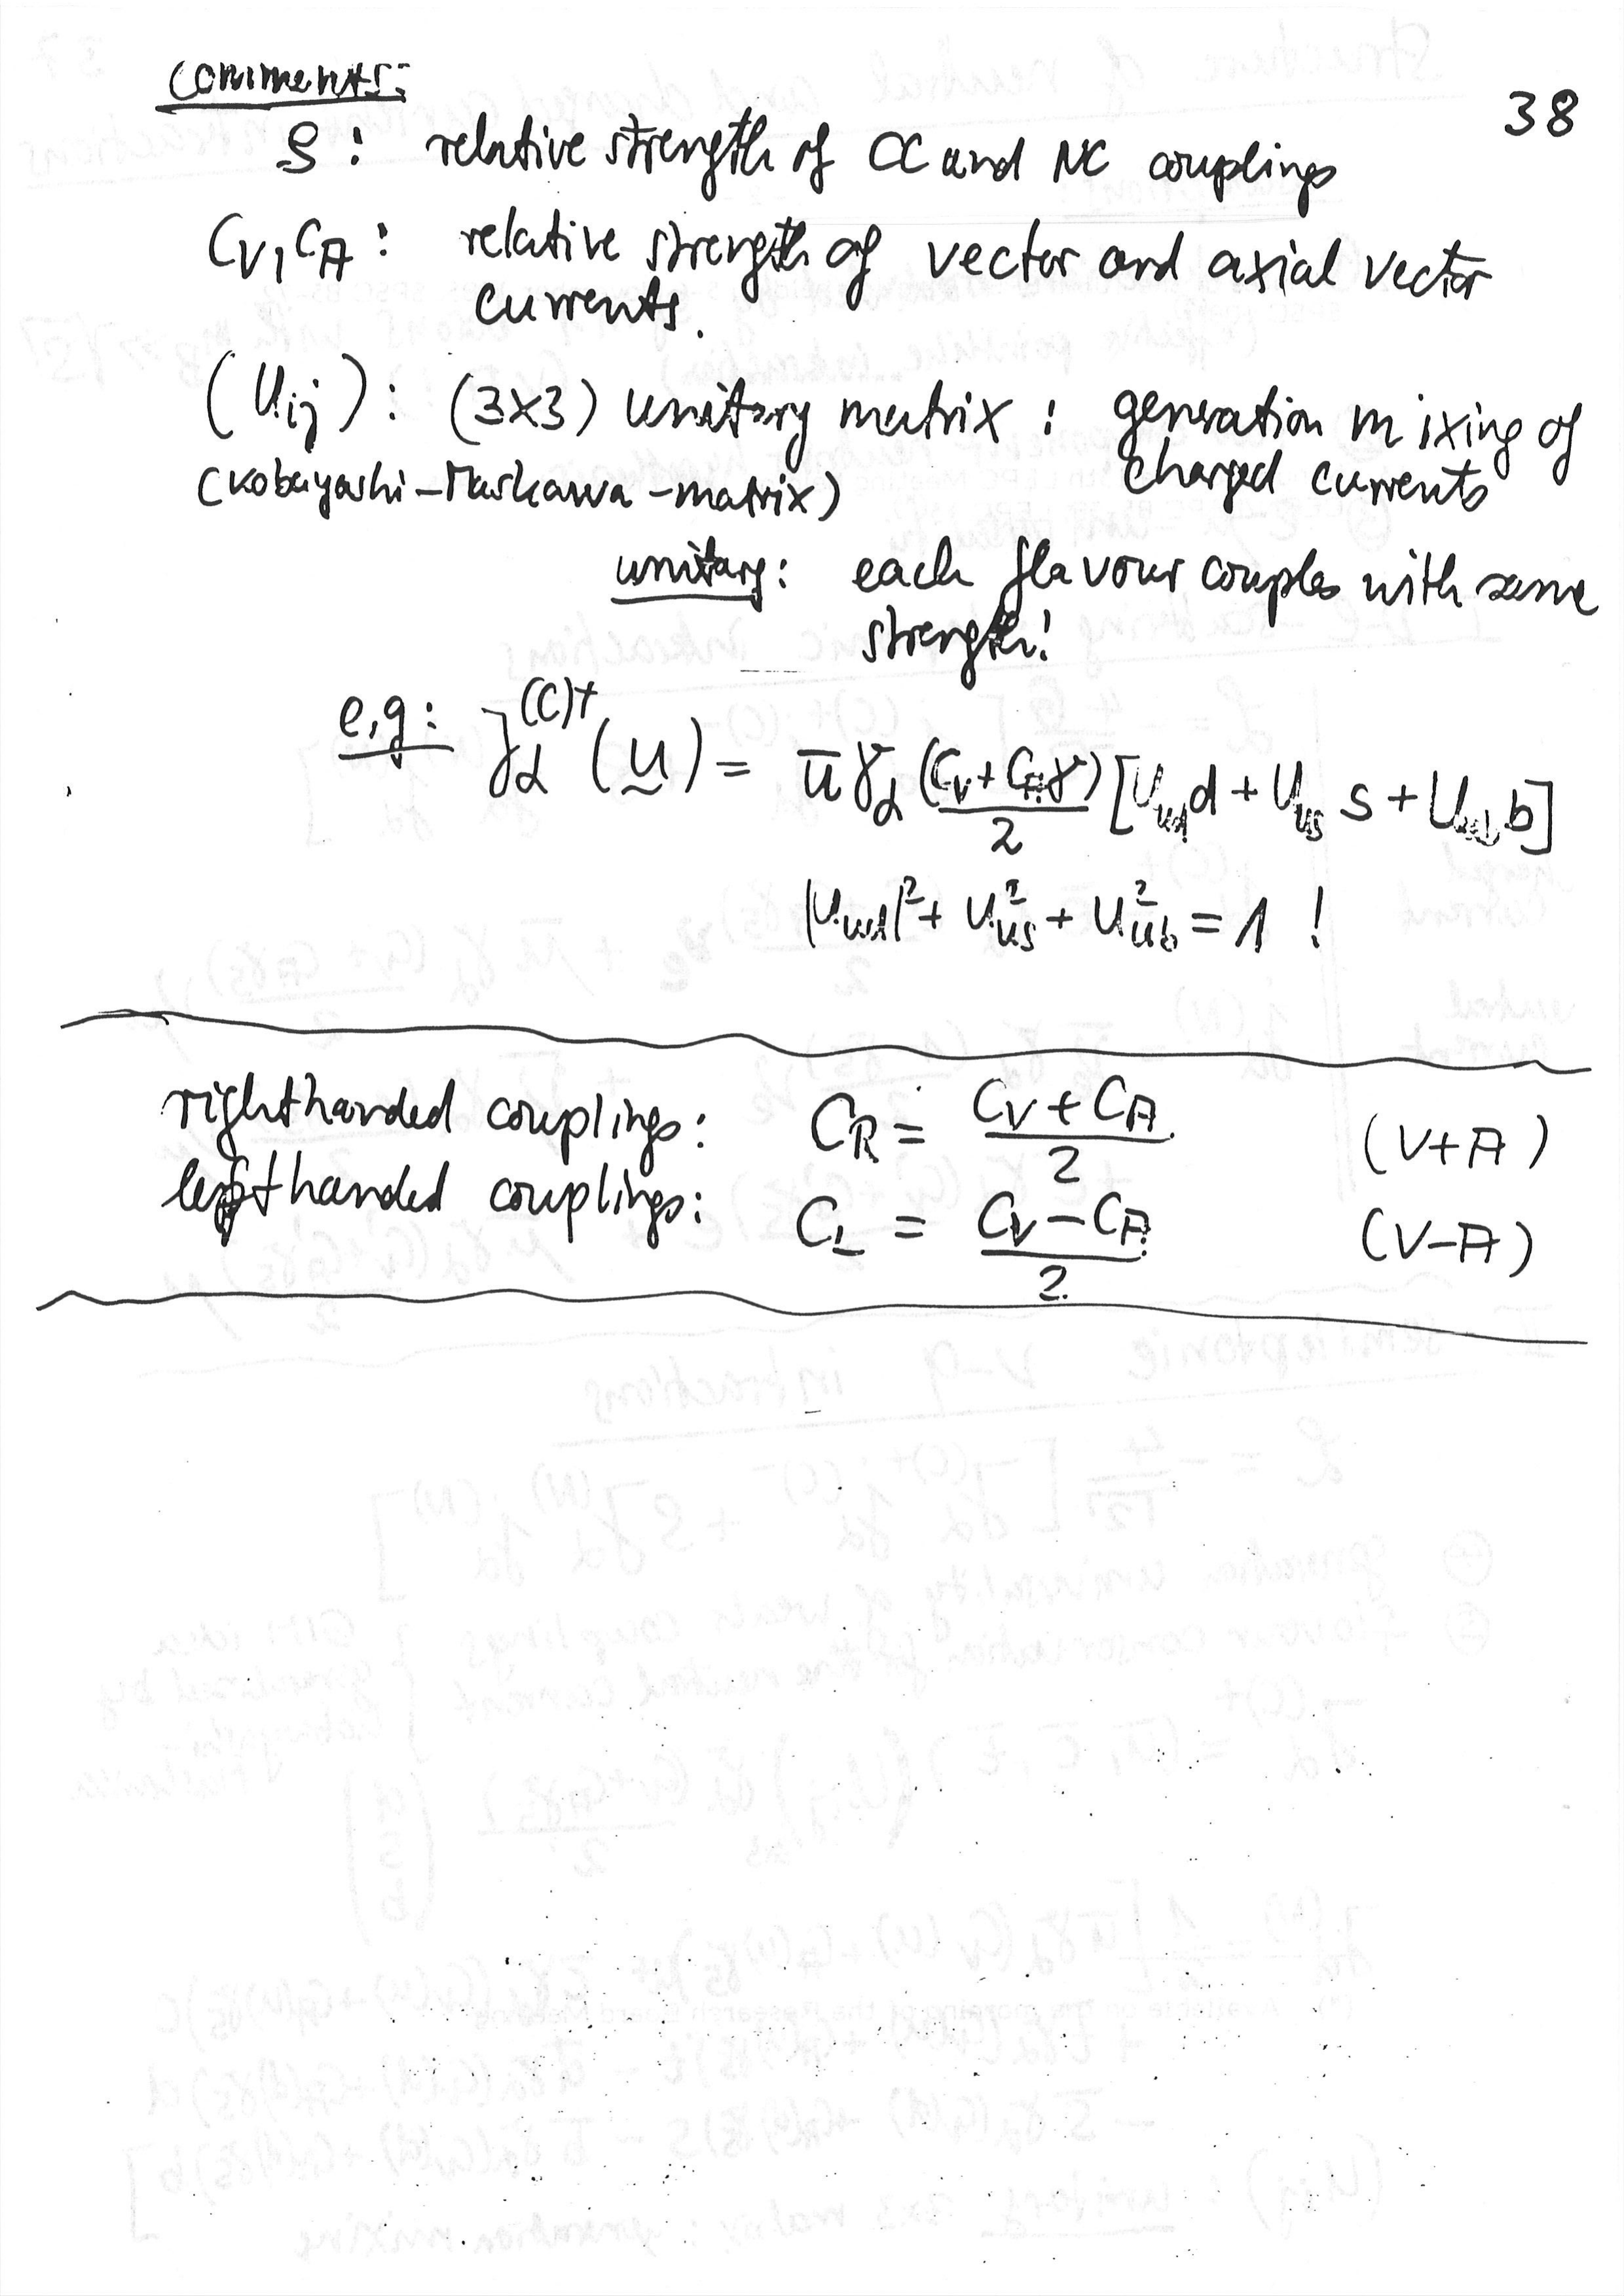 38
comments:
ρ: relative strength of CC and NC couplings
C_V, C_A: relative strength of vector and axial vector
currents.
(U_ij): (3x3) unitary matrix: generation mixing of
(Kobayashi-Maskawa-matrix) charged currents
unitary: each flavour couples with same
strength!
e.g: J_α^(C)+ (u) = ū γ_α (C_V + C_A γ)/2 [U_ud d + U_us s + U_ub b]
|U_ud|² + U_us² + U_ub² = 1 !
righthanded couplings: C_R = (C_V + C_A)/2 (V+A)
lefthanded couplings: C_L = (C_V − C_A)/2 (V−A)